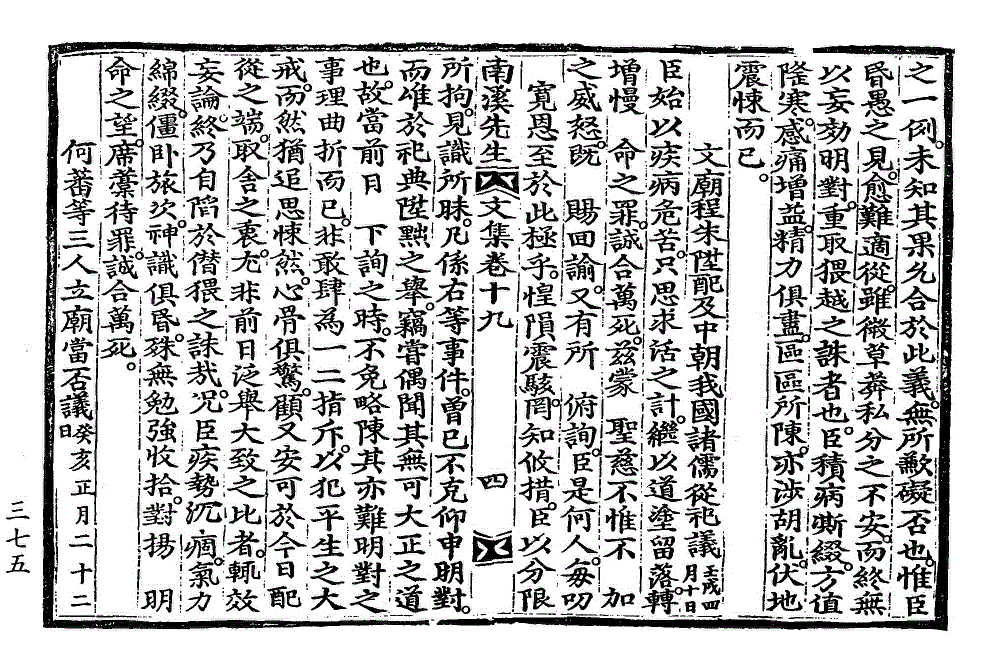 之一例。未知其果允合於此義。無所歉礙否也。惟臣
昏愚之見。愈難適從。雖微草莽私分之不安。而終無
以妄効明對。重取猥越之誅者也。臣積病嘶綴。方値
隆寒。感痛增益。精力俱盡。區區所陳。亦涉胡亂。伏地
震悚而已。
文廟程朱陞配及中朝我國諸儒從祀議 壬戌四月十日
臣始以疾病危苦。只思求活之計。繼以道塗留落。轉
增慢 命之罪。誠合萬死。玆蒙 聖慈不惟不 加
之威怒。旣 賜回諭。又有所 俯詢。臣是何人。每叨
寬恩至於此極乎。惶隕震駭。罔知攸措。臣以分限
南溪先生文集卷十九 四
所拘。見識所昧。凡係右等事件。曾已不克仰申明對。
而雖於祀典陞黜之擧。竊嘗偶聞其無可大正之道
也。故當前日 下詢之時。不免略陳其亦難明對之
事理曲折而已。非敢肆爲一二指斥。以犯平生之大
戒。而然猶追思悚然。心骨俱驚。顧又安可於今日配
從之端。取舍之衷。尤非前日泛擧大致之比者。輒效
妄論。終乃自陷於僭猥之誅哉。况臣疾勢沉痼。氣力
綿綴。僵臥旅次。神識俱昏。殊無勉強收拾。對揚 明
命之望。席藁待罪。誠合萬死。
何蕃等三人立廟當否議 癸亥正月二十二日
三七五